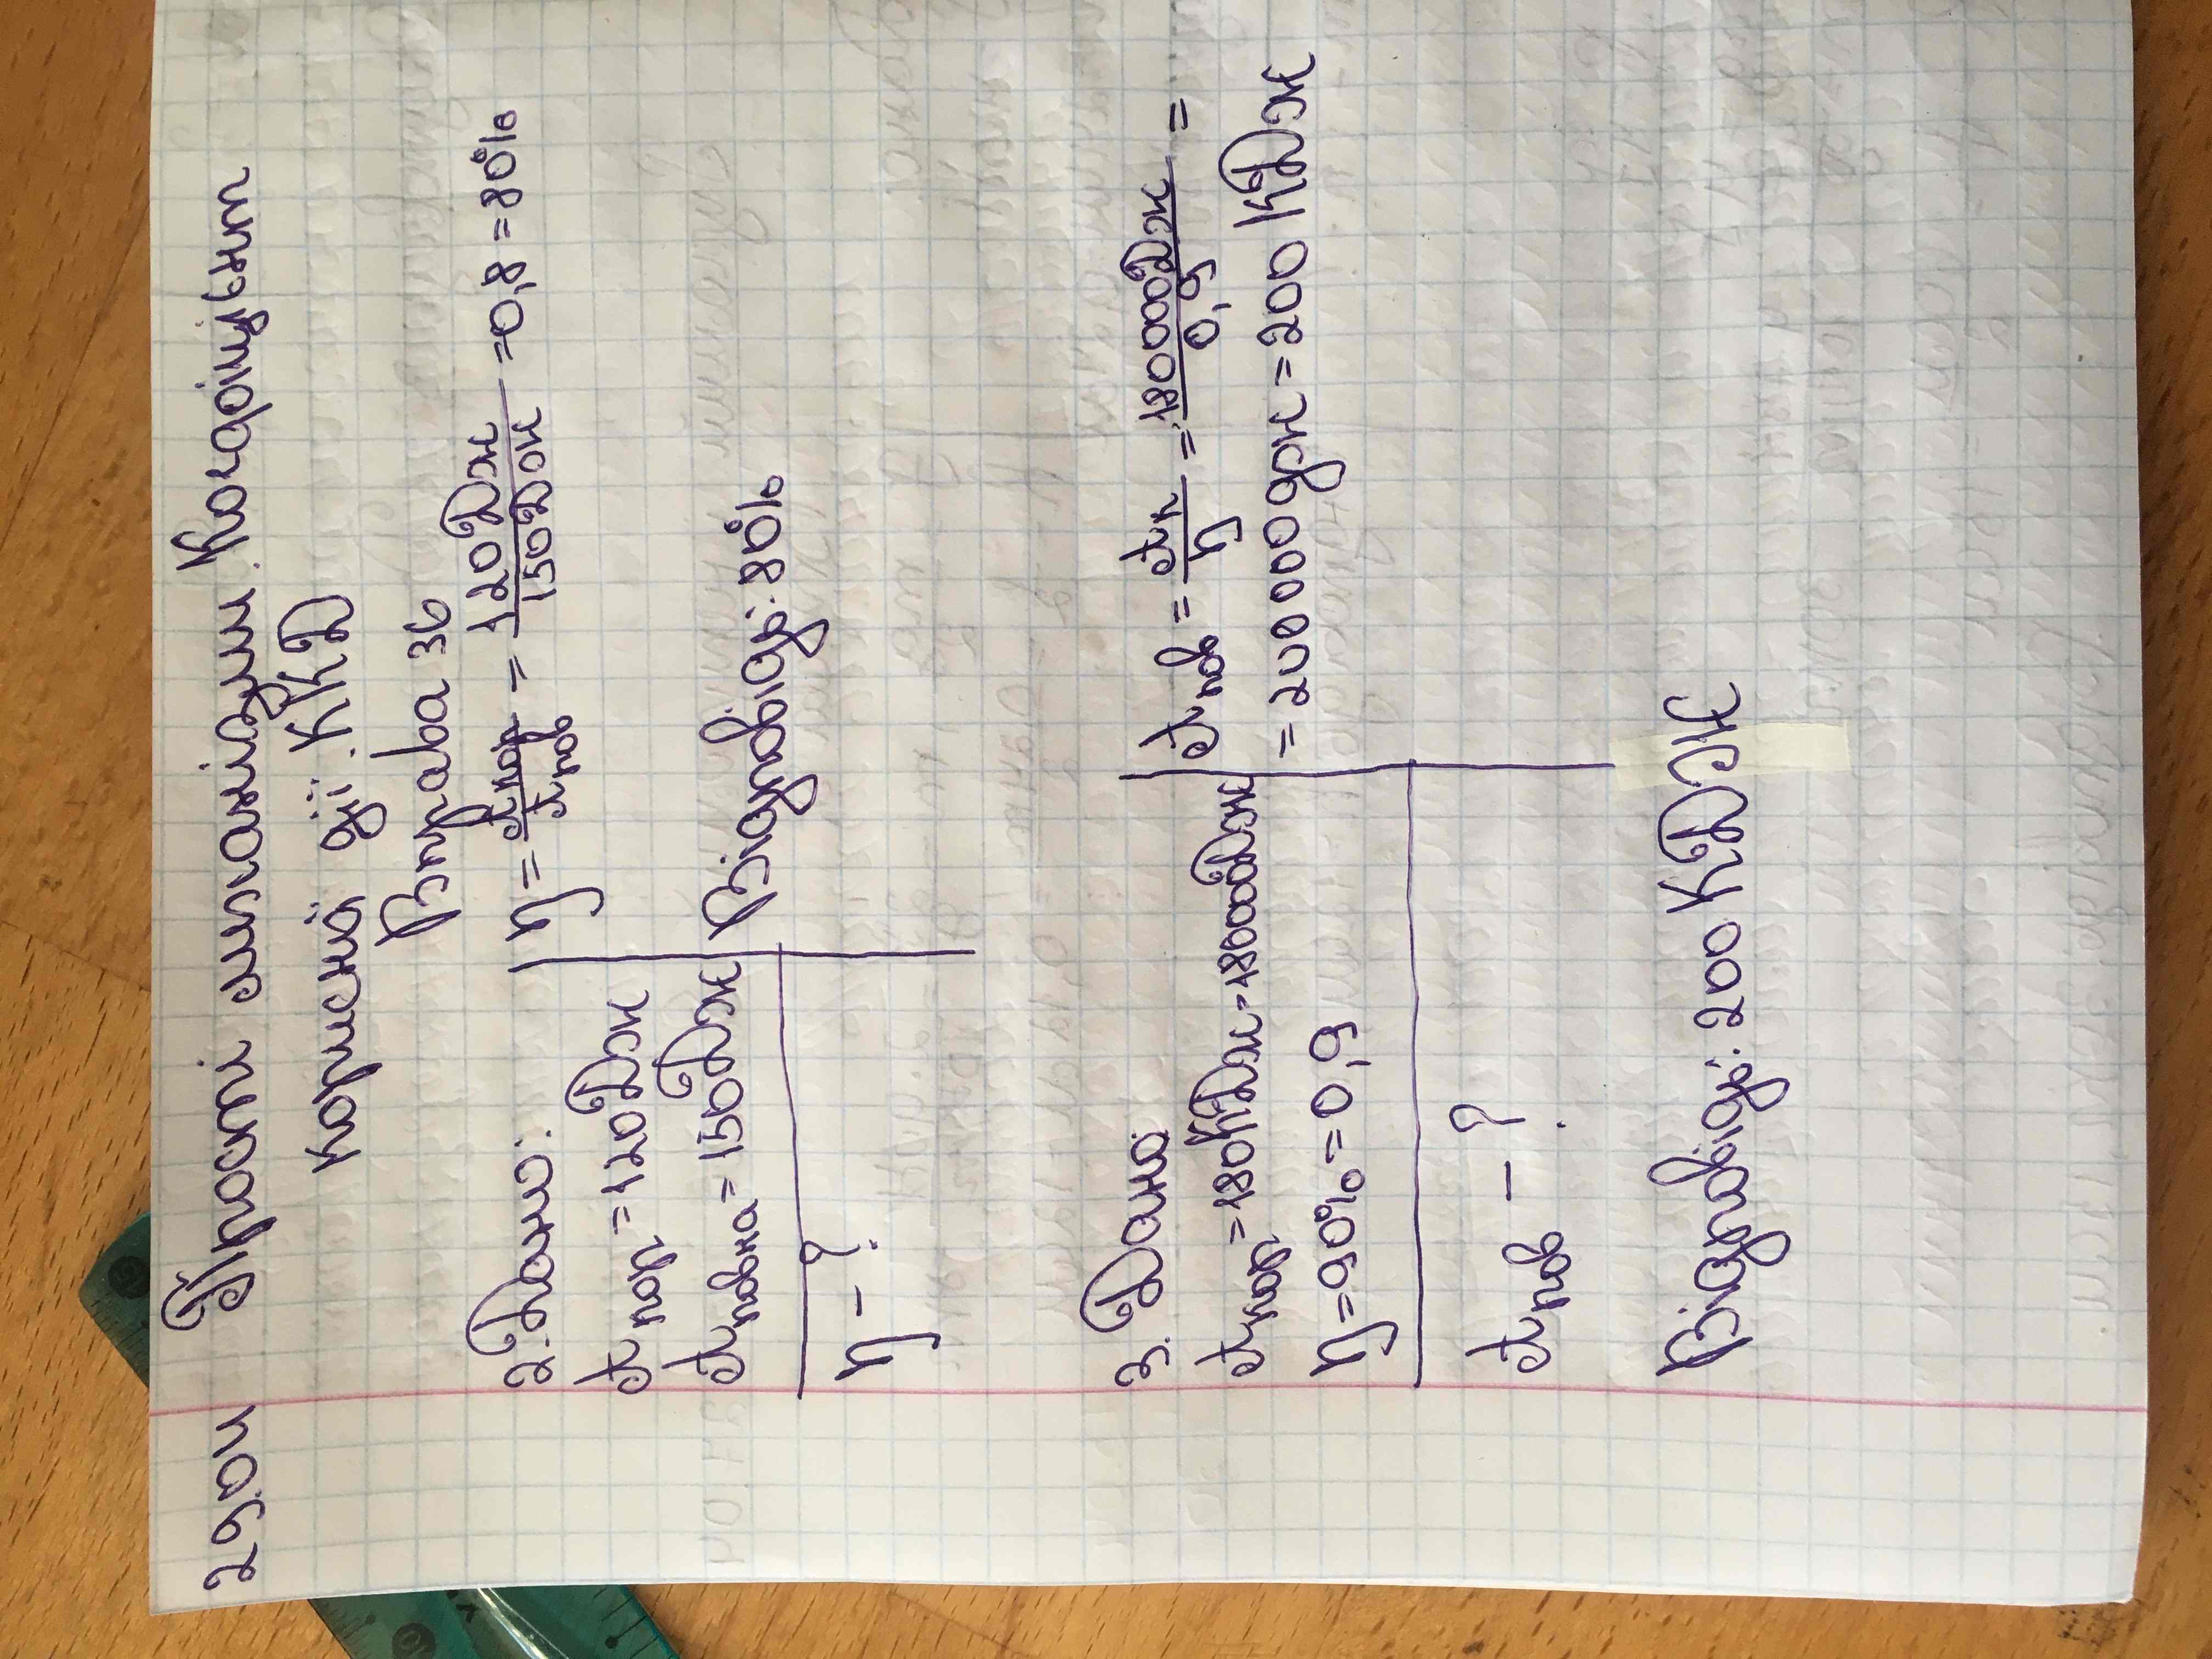 29.04 Прості механізми. Коефіцієнт
корисної дії. ККД
Вправа 36
2. Дано:
Aкор = 120Дж
Aповна = 150Дж
η - ?
η = Aкор/Aпов = 120Дж/150Дж = 0,8 = 80%
Відповідь: 80%
3. Дано:
Aкор = 180кДж = 180000Дж
η = 90% = 0,9
Aпов - ?
Aпов = Aк/η = 180000Дж/0,9 =
= 200000 Дж = 200 кДж
Відповідь: 200 кДж